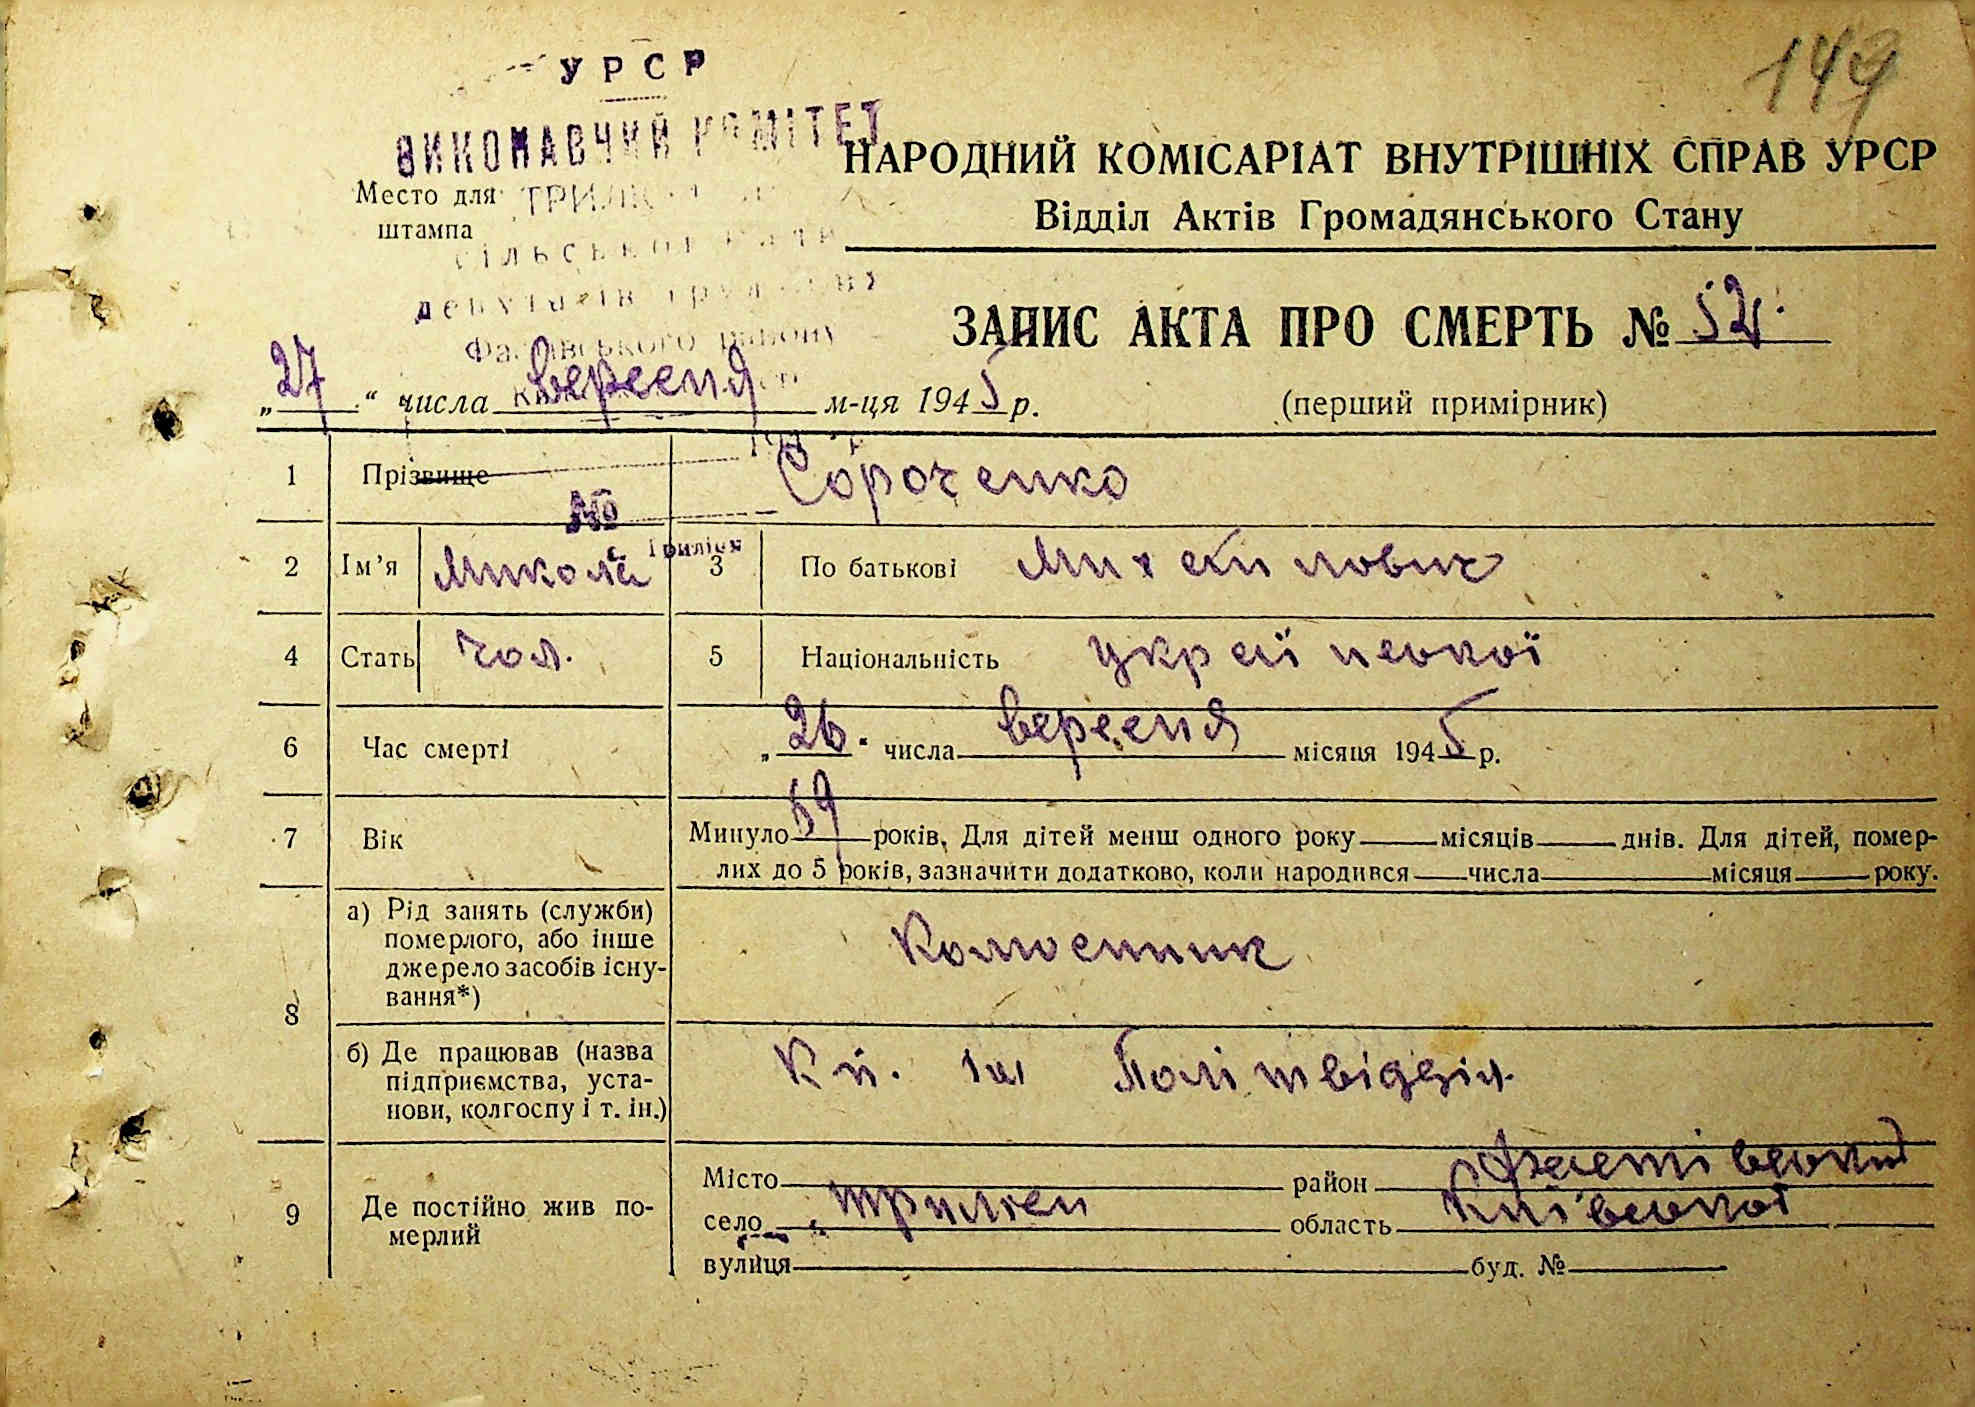 149
УРСР
ВИКОНАВЧИЙ КОМІТЕТ
НАРОДНИЙ КОМІСАРІАТ ВНУТРІШНІХ СПРАВ УРСР
Место для
штампа
Відділ Актів Громадянського Стану
сільської ради
депутатів трудящих
Фастівського району
ЗАПИС АКТА ПРО СМЕРТЬ №
„27“ числа вересня м-ця 1945 р.
(перший примірник)
1 Прізвище Сороченко
2 Ім'я Микола 3 По батькові Михайлович
4 Стать чол. 5 Національність української
6 Час смерті „26“ числа вересня місяця 1945 р.
7 Вік Минуло 59 років. Для дітей менш одного року місяців днів. Для дітей, помер-
лих до 5 років, зазначити додатково, коли народився числа місяця року.
8 а) Рід занять (служби)
померлого, або інше
джерело засобів існу-
вання*)
Колгоспник
б) Де працював (назва
підприємства, уста-
нови, колгоспу і т. ін.)
К-п. ім Політвідділ.
9 Де постійно жив по-
мерлий
Місто район Фастівський
село Триліси область Київської
вулиця буд. №